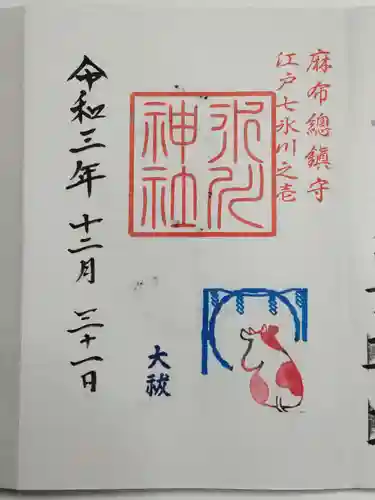 麻布總鎭守
江戸七氷川之壱
氷川
神社
令和三年 十二月 三十一日
大祓